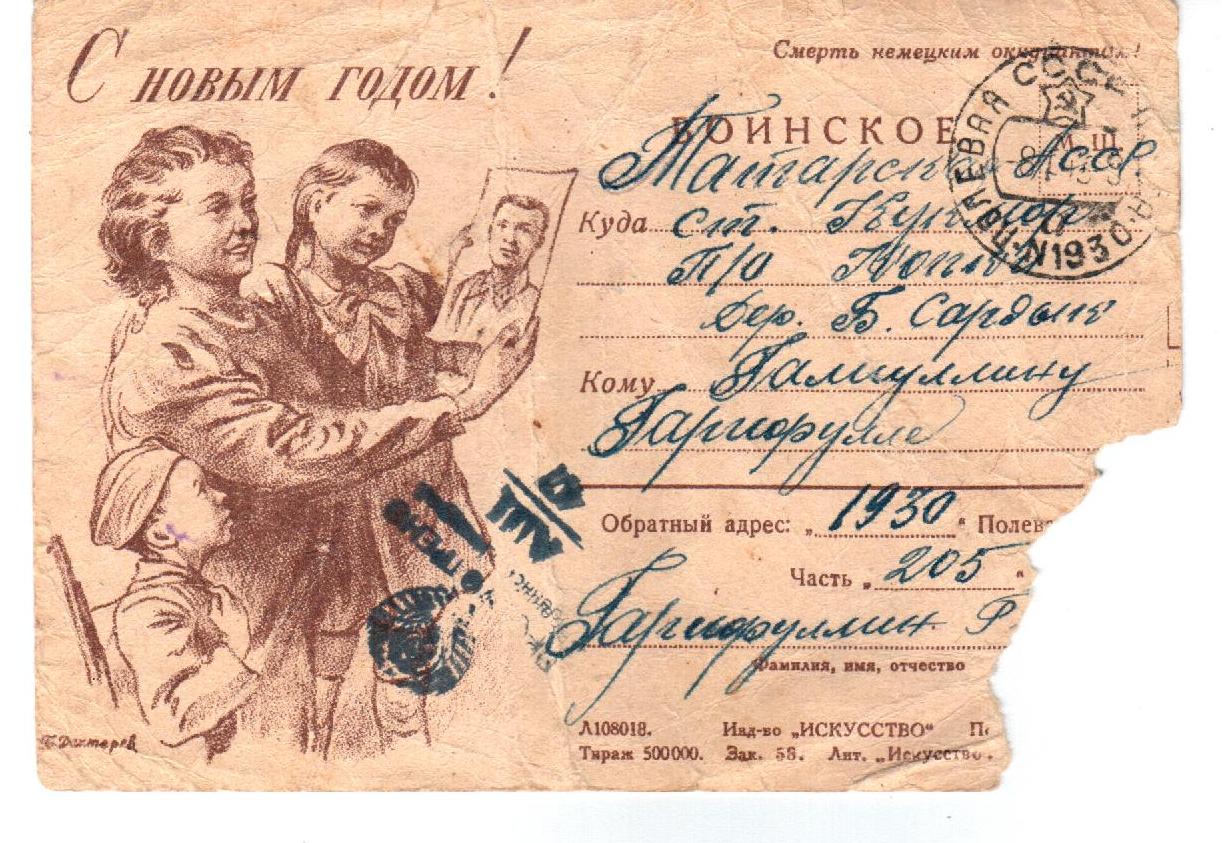 С новым годом!
Смерть немецким оккупантам!
ВОИНСКОЕ
Татарская Асср
Куда ст. Кукмор
П/о
дер. Б. Сардык
Кому Галиуллину
Гарифулле
Обратный адрес: „1930“ Полева
Часть „205“
Гарифуллин Г.
Фамилия, имя, отчество
Л108018. Изд-во „ИСКУССТВО“
Тираж 500000. Зак. 58. Лит. „Искусство“.
ПОЛЕВАЯ СССР
1930